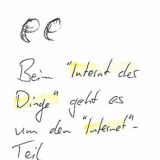 Beim "Internt der
Dinge" geht es
um den "Internet"-
Teil